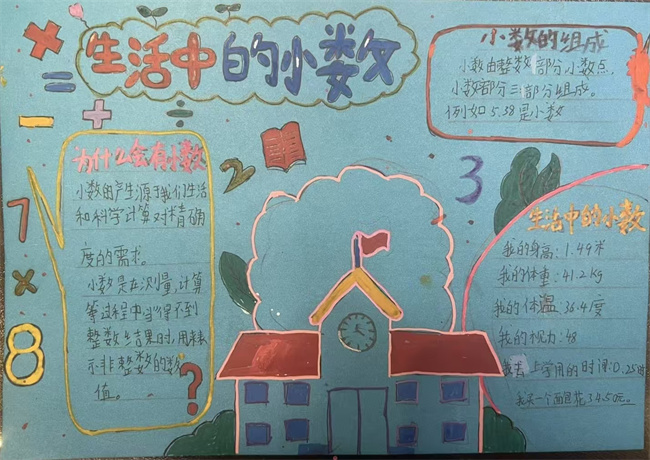 生活中的小数
小数的组成
小数由整数部分小数点,
小数部分三部分组成。
例如5.38是小数
为什么会有小数
小数的产生源于我们生活
和科学计算对精确
度的需求。
小数是在测量,计算
等过程中当得不到
整数结果时,用来表
示非整数的数
值。
?
2
3
7
×
8
×
=
-
+
÷
生活中的小数
我的身高:1.49米
我的体重:41.2kg
我的体温:36.4度
我的视力:48
上学用的时
我买一个 花34.50元。